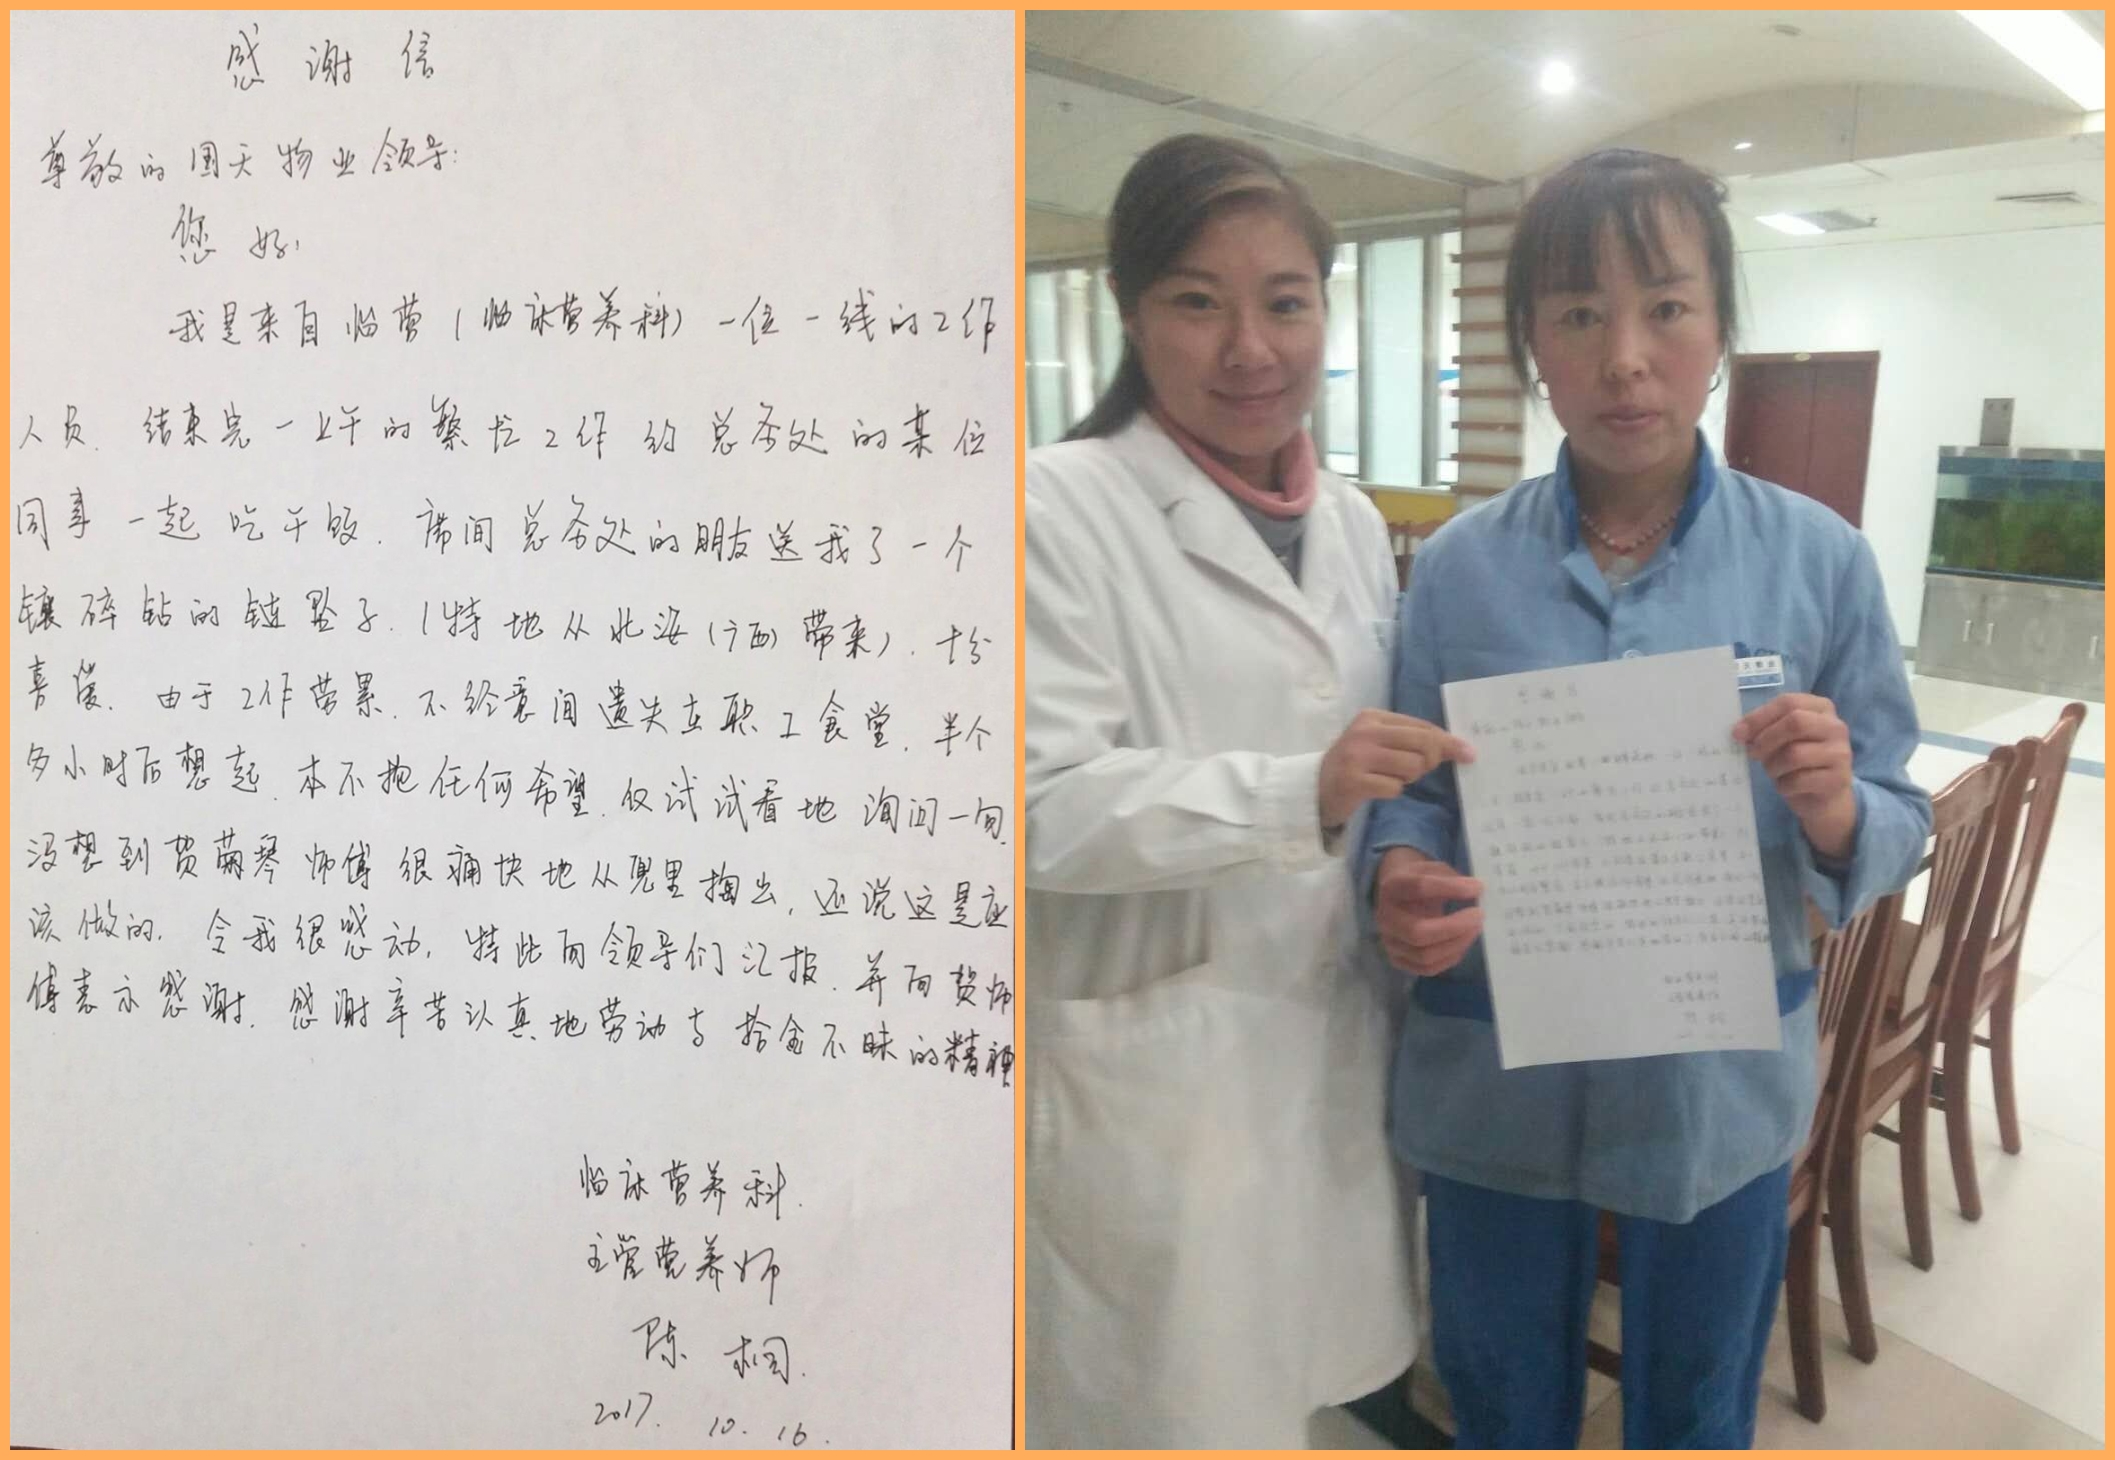 感谢信
尊敬的国天物业领导:
您好,
我是来自临营(临床营养科)一位一线的工作
人员.结束完一上午的繁忙工作约总务处的某位
同事一起吃午饭.席间总务处的朋友送我了一个
镶碎钻的链坠子.(特地从北海(广西)带来).十分
喜爱.由于工作劳累.不经意间遗失在职工食堂.半个
多小时后想起.本不抱任何希望.仅试试看地询问一句.
没想到贺菊琴师傅很痛快地从兜里掏出,还说这是应
该做的.令我很感动,特此向领导们汇报.并向贺师
傅表示感谢.感谢辛苦认真地劳动与拾金不昧的精神
临床营养科.
主管营养师
陈桐.
2017.10.16.